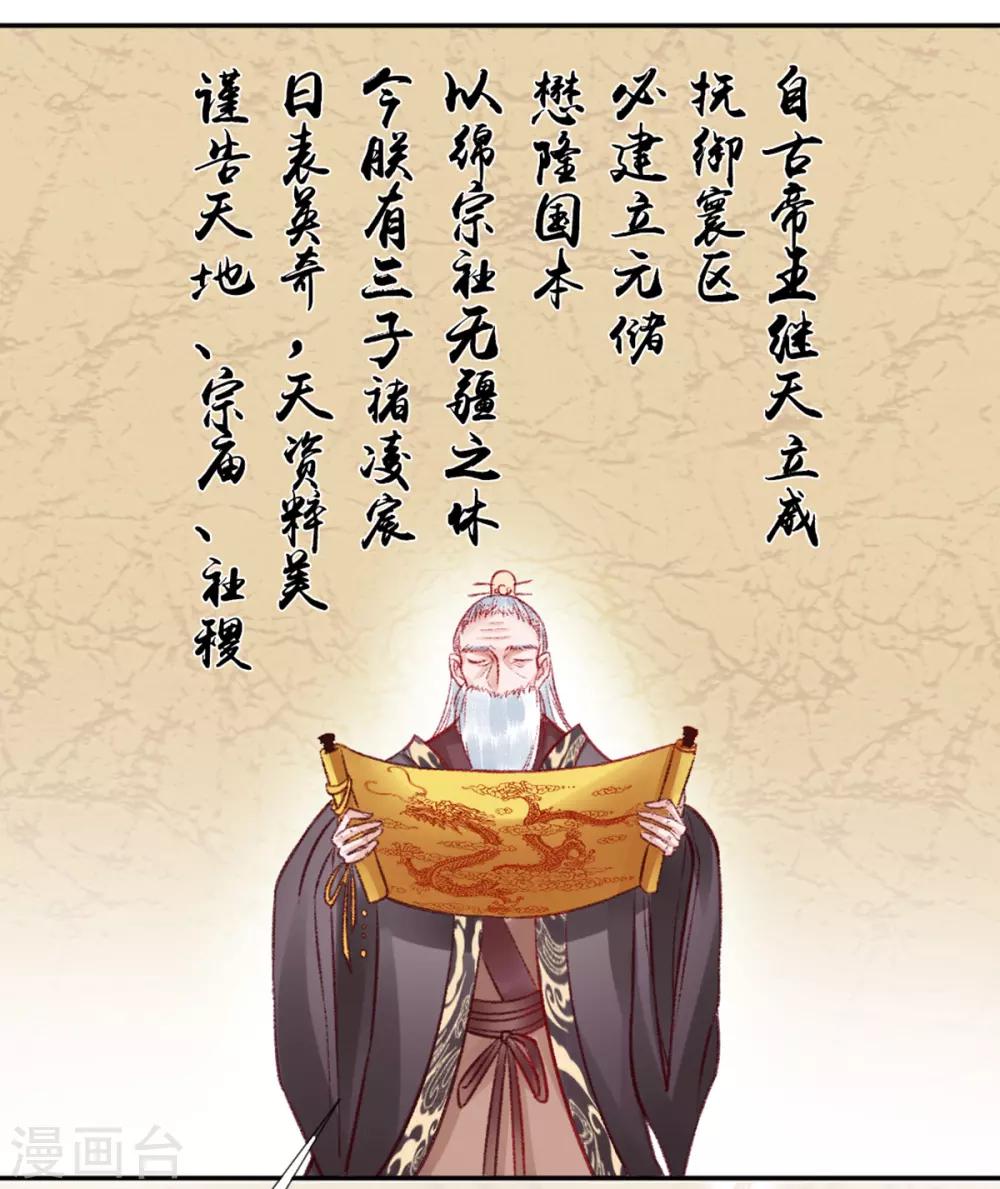 自古帝王继天立威
抚御寰区
必建立元储
懋隆国本
以绵宗社无疆之休
今朕有三子褚凌宸
日表英奇，天资粹美
谨告天地、宗庙、社稷
漫画台